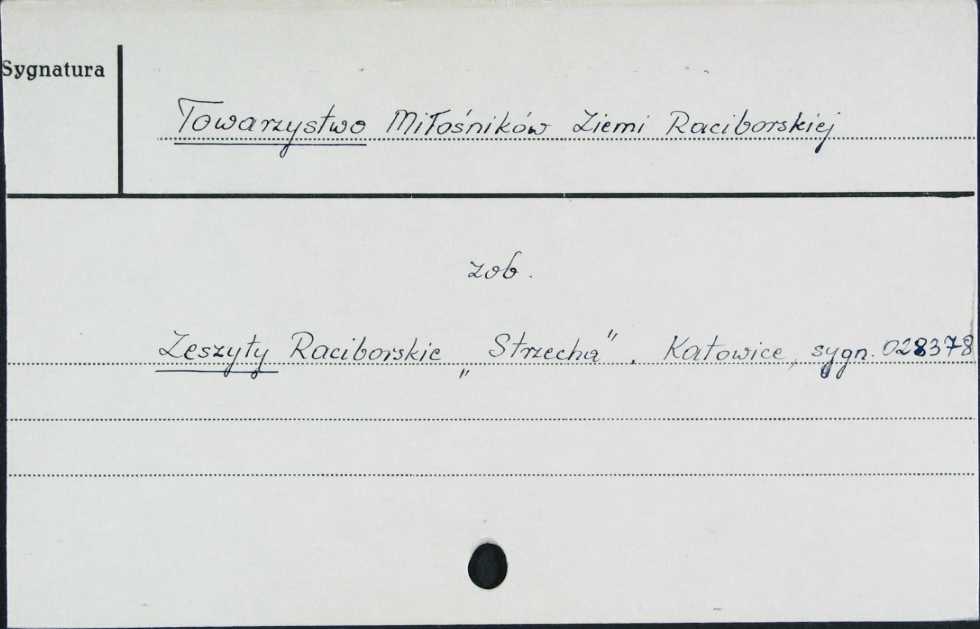 Sygnatura
Towarzystwo Miłośników Ziemi Raciborskiej
zob.
Zeszyty Raciborskie „Strzecha". Katowice, sygn. 028378